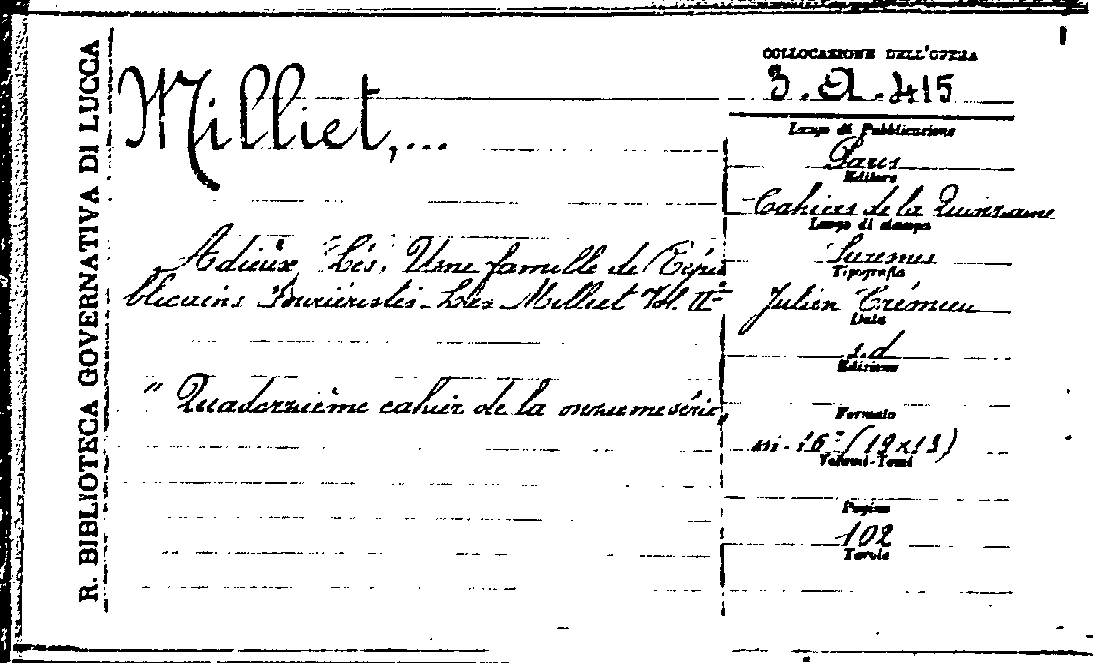 R. BIBLIOTECA GOVERNATIVA DI LUCCA
Milliet,...
Adieux, Les. Une famille de Répu
blicains Fouriéristes - Les Milliet Vol. II°
" Quatorzième cahier de la onzième série,
COLLOCAZIONE DELL'OPERA
3. A. 415
Luogo di Pubblicazione
Paris
Editore
Cahiers de la Quinzaine
Luogo di stampa
Suresnes
Tipografia
Julien Crémieu
Data
s.d
Edizione
Formato
in-16° (19x13)
Volumi-Tomi
Pagine
102
Tavole